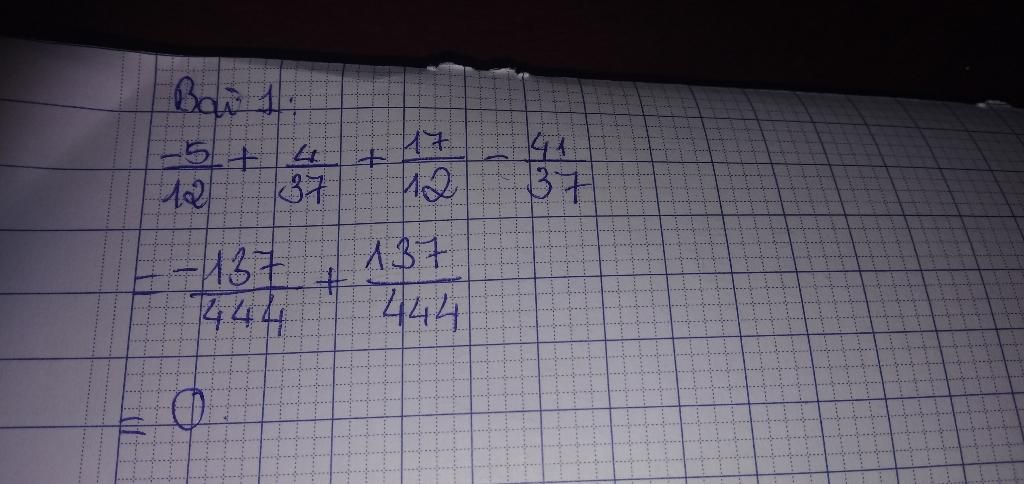 Bài 1:
-5/12 + 4/37 + 17/12 - 41/37
= -137/444 + 137/444
= 0.